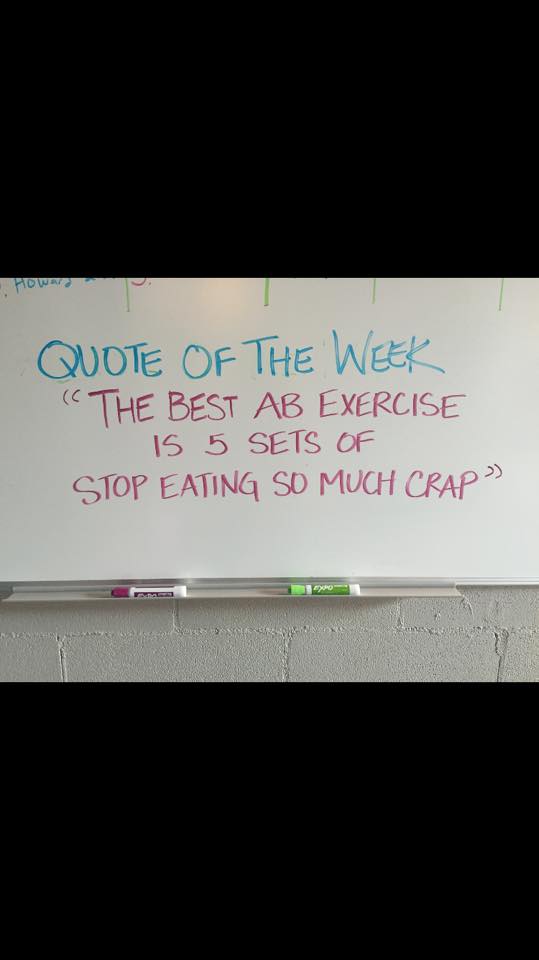 Howard
QUOTE OF THE WEEK
“THE BEST AB EXERCISE
IS 5 SETS OF
STOP EATING SO MUCH CRAP”
EXPO EXPO